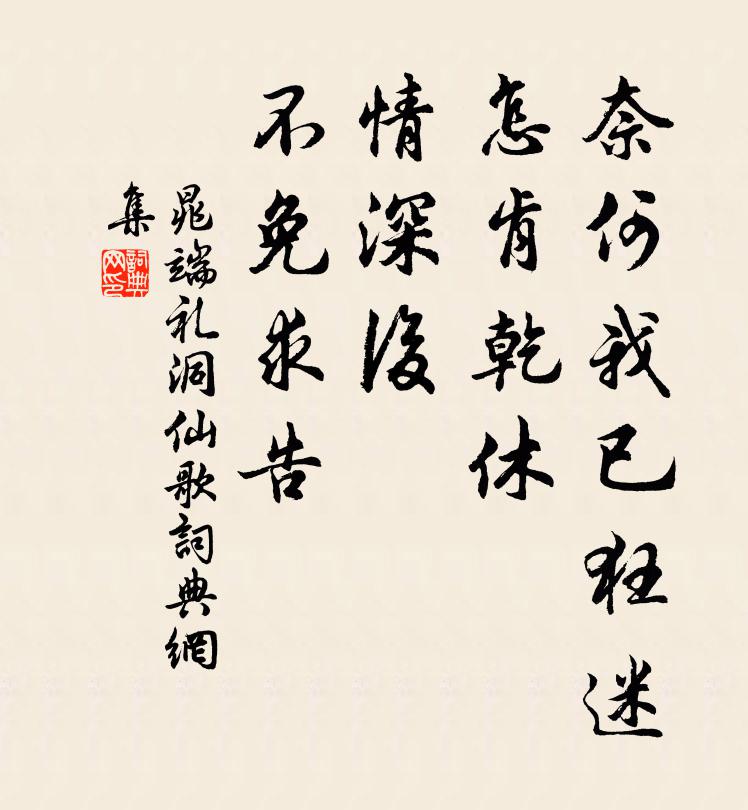 奈何我已狂迷
怎肯乾休
情深後
不免求告
晁端礼洞仙歌詞典網
集
詞典
网印